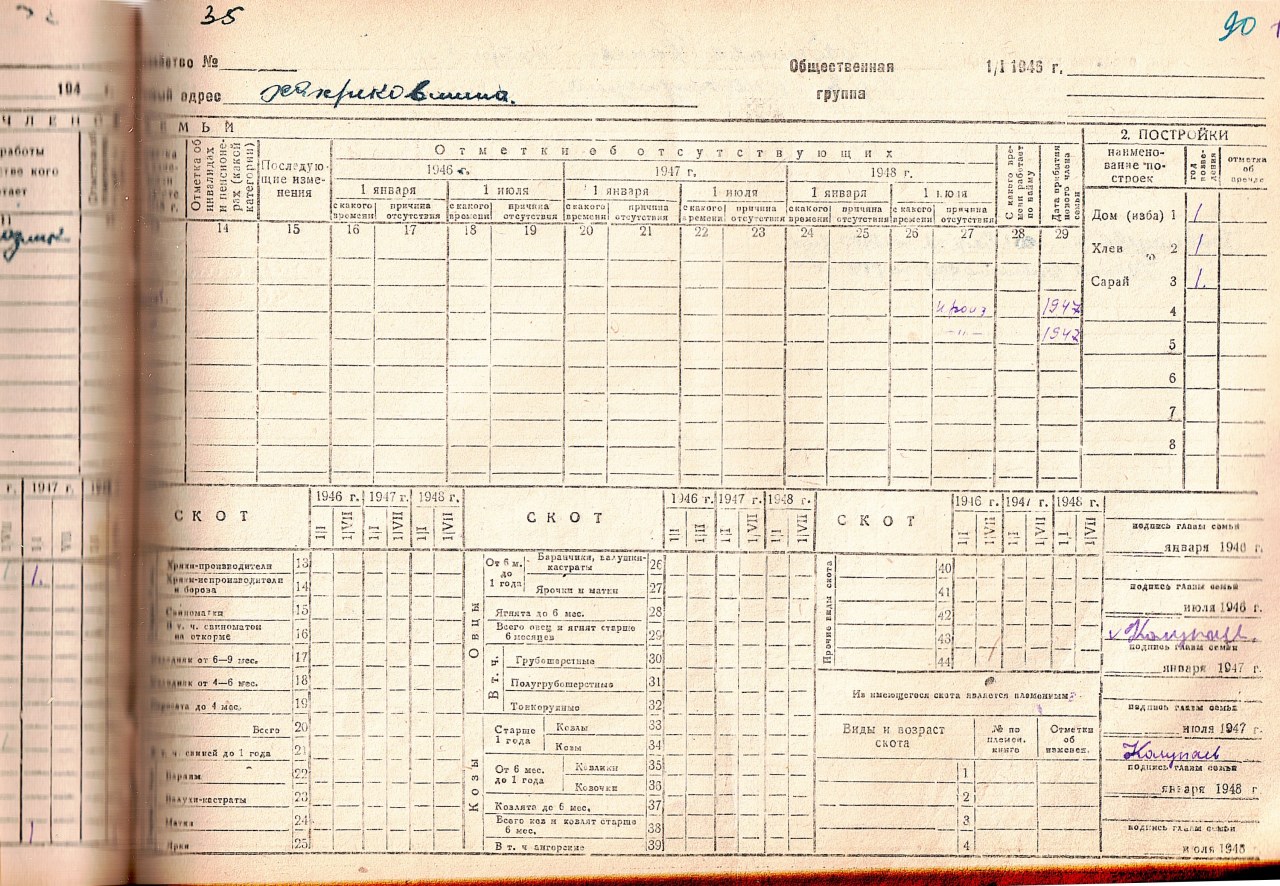 35
90
№
Общественная 1/I 1946 г.
адрес
группа
194
МЬИ
2. ПОСТРОЙКИ
работы
Отметка об инвалидах и пенсионерах (какой категории)
Последую-
щие изме-
нения
Отметки об отсутствующих
1946 г. 1947 г. 1948 г.
1 января 1 июля 1 января 1 июля 1 января 1 июля
с какого времени причина отсутствия с какого времени причина отсутствия с какого времени причина отсутствия с какого времени причина отсутствия с какого времени причина отсутствия с какого времени причина отсутствия
С какого времени работает по найму
Дата прибытия нового члена семьи
наимено-
вание по-
строек
год возведения
отметка
об
14 15 16 17 18 19 20 21 22 23 24 25 26 27 28 29
Дом (изба) 1 /
Хлев 2 /
Сарай 3 /
1947 4
-"- 1942 5
6
7
8
1947 г.
СКОТ 1946 г. 1947 г. 1948 г.
1/I 1/VII 1/I 1/VII 1/I 1/VII
Хряки-производители 13
Хряки-непроизводители
и борова 14
Свиноматки 15
В т. ч. свиноматок
на откорме 16
от 6—9 мес. 17
от 4—6 мес. 18
до 4 мес. 19
Всего 20
В т. ч. свиней до 1 года 21
Бараны 22
Валухи-кастраты 23
Матки 24
Ярки 25
СКОТ 1946 г. 1947 г. 1948 г.
1/I 1/VII 1/I 1/VII 1/I 1/VII
Овцы
От 6 м.
до
1 года
Баранчики, валушки-
кастраты 26
Ярочки и матки 27
Ягнята до 6 мес. 28
Всего овец и ягнят старше
6 месяцев 29
В т. ч.
Грубошерстные 30
Полугрубошерстные 31
Тонкорунные 32
Козы
Старше
1 года
Козлы 33
Козы 34
От 6 мес.
до 1 года
Козлики 35
Козочки 36
Козлята до 6 мес. 37
Всего коз и козлят старше
6 мес. 38
В т. ч ангорские 39
СКОТ 1946 г. 1947 г. 1948 г.
1/I 1/VII 1/I 1/VII 1/I 1/VII
Прочие виды скота
40
41
42
43
44
Из имеющегося скота является племенным:
Виды и возраст
скота
№ по
племен.
книге
Отметки
об
изменен.
1
2
3
4
подпись главы семьи
января 1946 г.
подпись главы семьи
июля 1946 г.
подпись главы семьи
января 1947 г.
подпись главы семьи
июля 1947 г.
Колупаев
подпись главы семьи
января 1948 г.
подпись главы семьи
июля 1948